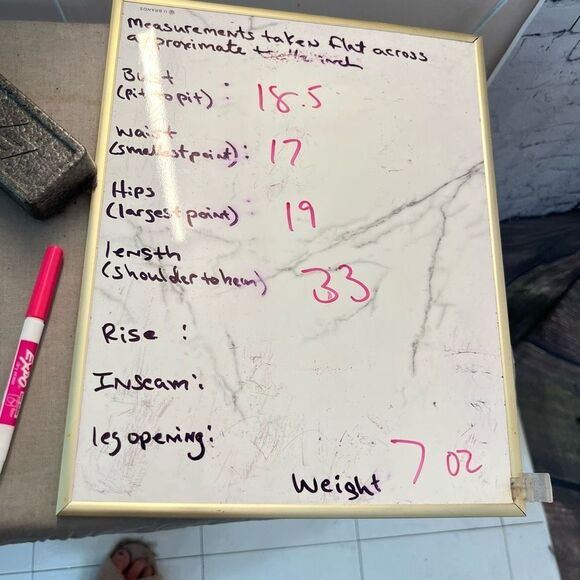 U BRANDS
measurements taken flat across
approximate to the inch
Bust
(pit to pit) : 18.5
waist
(smallest point) : 17
Hips
(largest point) 19
length
(shoulder to hem) 33
Rise :
Inseam :
leg opening :
Weight 7 oz
EXPO